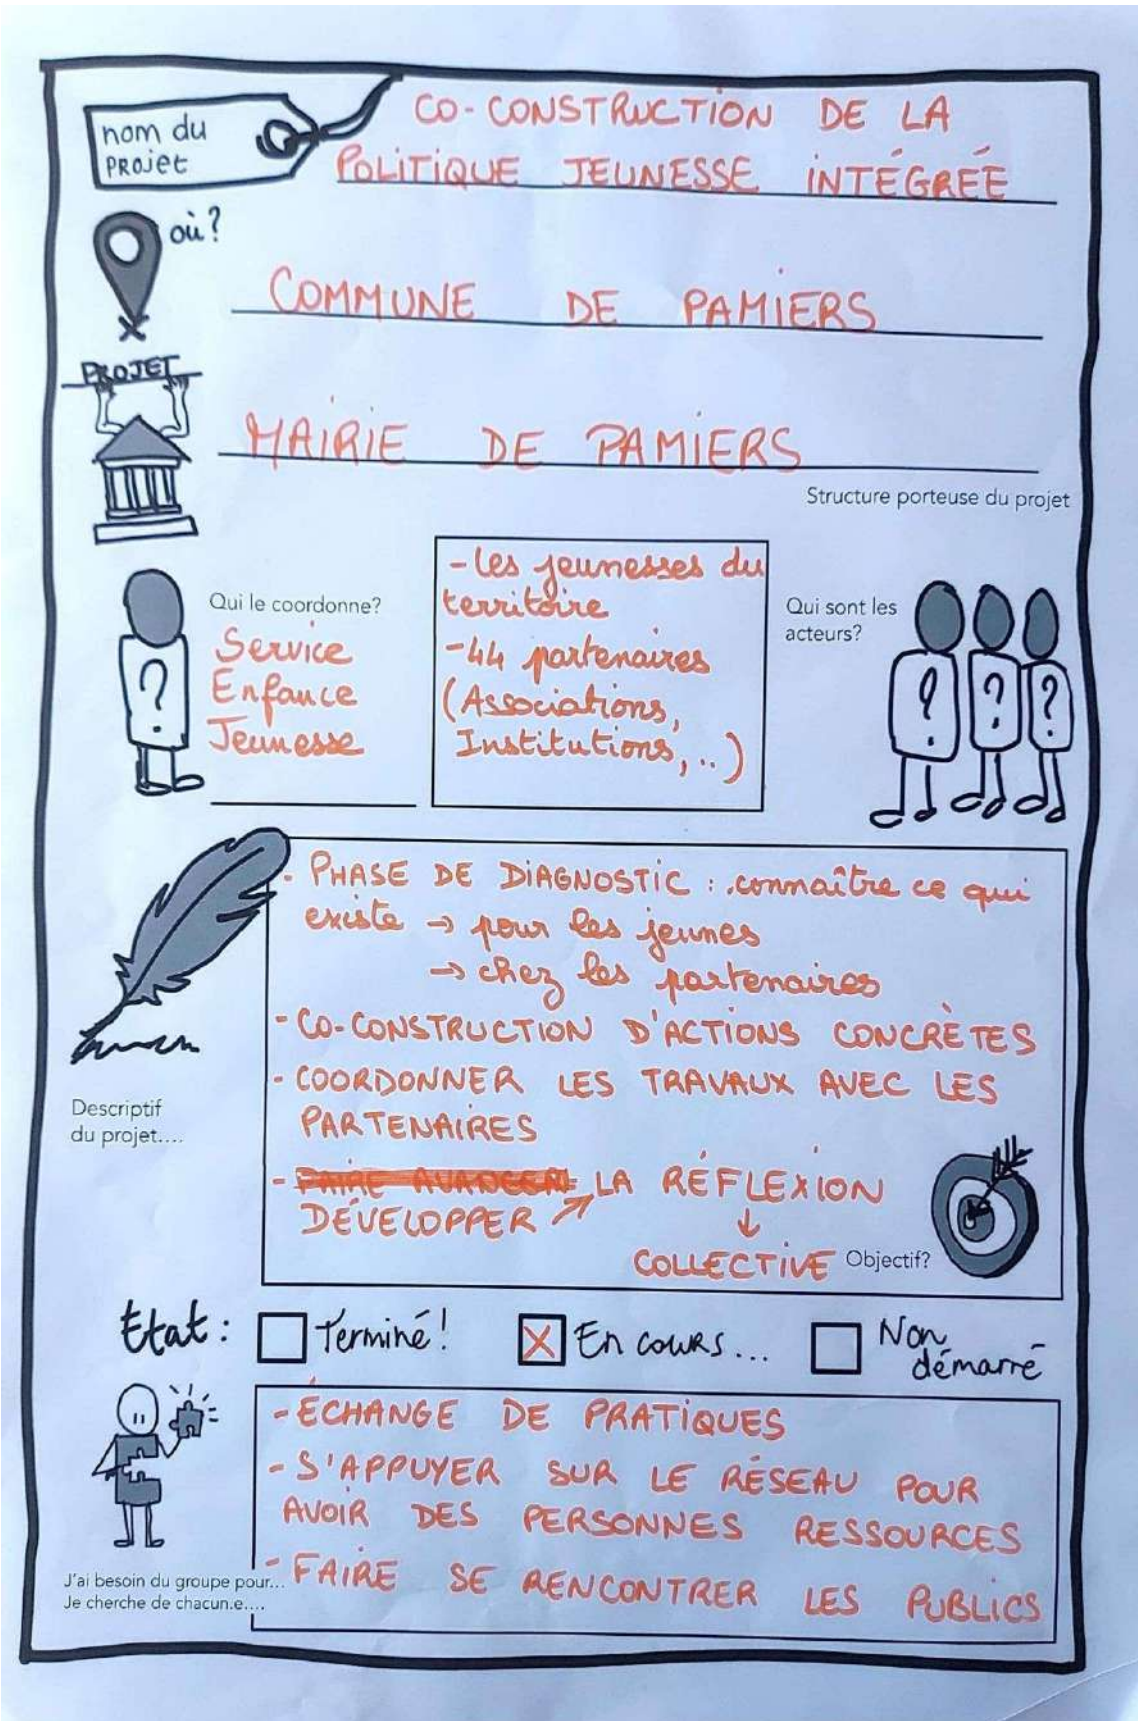 nom du
PROJET
CO-CONSTRUCTION DE LA
POLITIQUE JEUNESSE INTÉGRÉE
où?
COMMUNE DE PAMIERS
PROJET
MAIRIE DE PAMIERS
Structure porteuse du projet
Qui le coordonne?
Service
Enfance
Jeunesse
- les jeunesses du
territoire
- 44 partenaires
(Associations,
Institutions, ..)
Qui sont les
acteurs?
? ? ? ?
- PHASE DE DIAGNOSTIC : connaître ce qui
existe → pour les jeunes
→ chez les partenaires
- CO-CONSTRUCTION D'ACTIONS CONCRÈTES
- COORDONNER LES TRAVAUX AVEC LES
PARTENAIRES
- FAIRE AVANCER LA RÉFLEXION
DÉVELOPPER ↗ ↓
COLLECTIVE
Descriptif
du projet....
Objectif?
Etat : Terminé! X En cours... Non
démarré
- ÉCHANGE DE PRATIQUES
- S'APPUYER SUR LE RÉSEAU POUR
AVOIR DES PERSONNES RESSOURCES
- FAIRE SE RENCONTRER LES PUBLICS
J'ai besoin du groupe pour...
Je cherche de chacun.e....